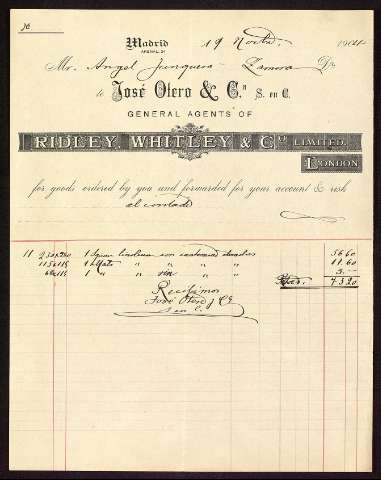 Madrid 19 Novbre. 1904
Mr. Angel Junquera Zamora Dr.
to José Otero & Cª S. en C.
GENERAL AGENTS OF
RIDLEY WHITLEY & Cº LIMITED.
LONDON
for goods ordered by you and forwarded for your account & risk
al contado
11 1 linoleum con 56.60
1 " " " " 11.60
1 " " " " 5.-
Ptas. 73.20
Recibimos
José Otero y Cª
S en C.